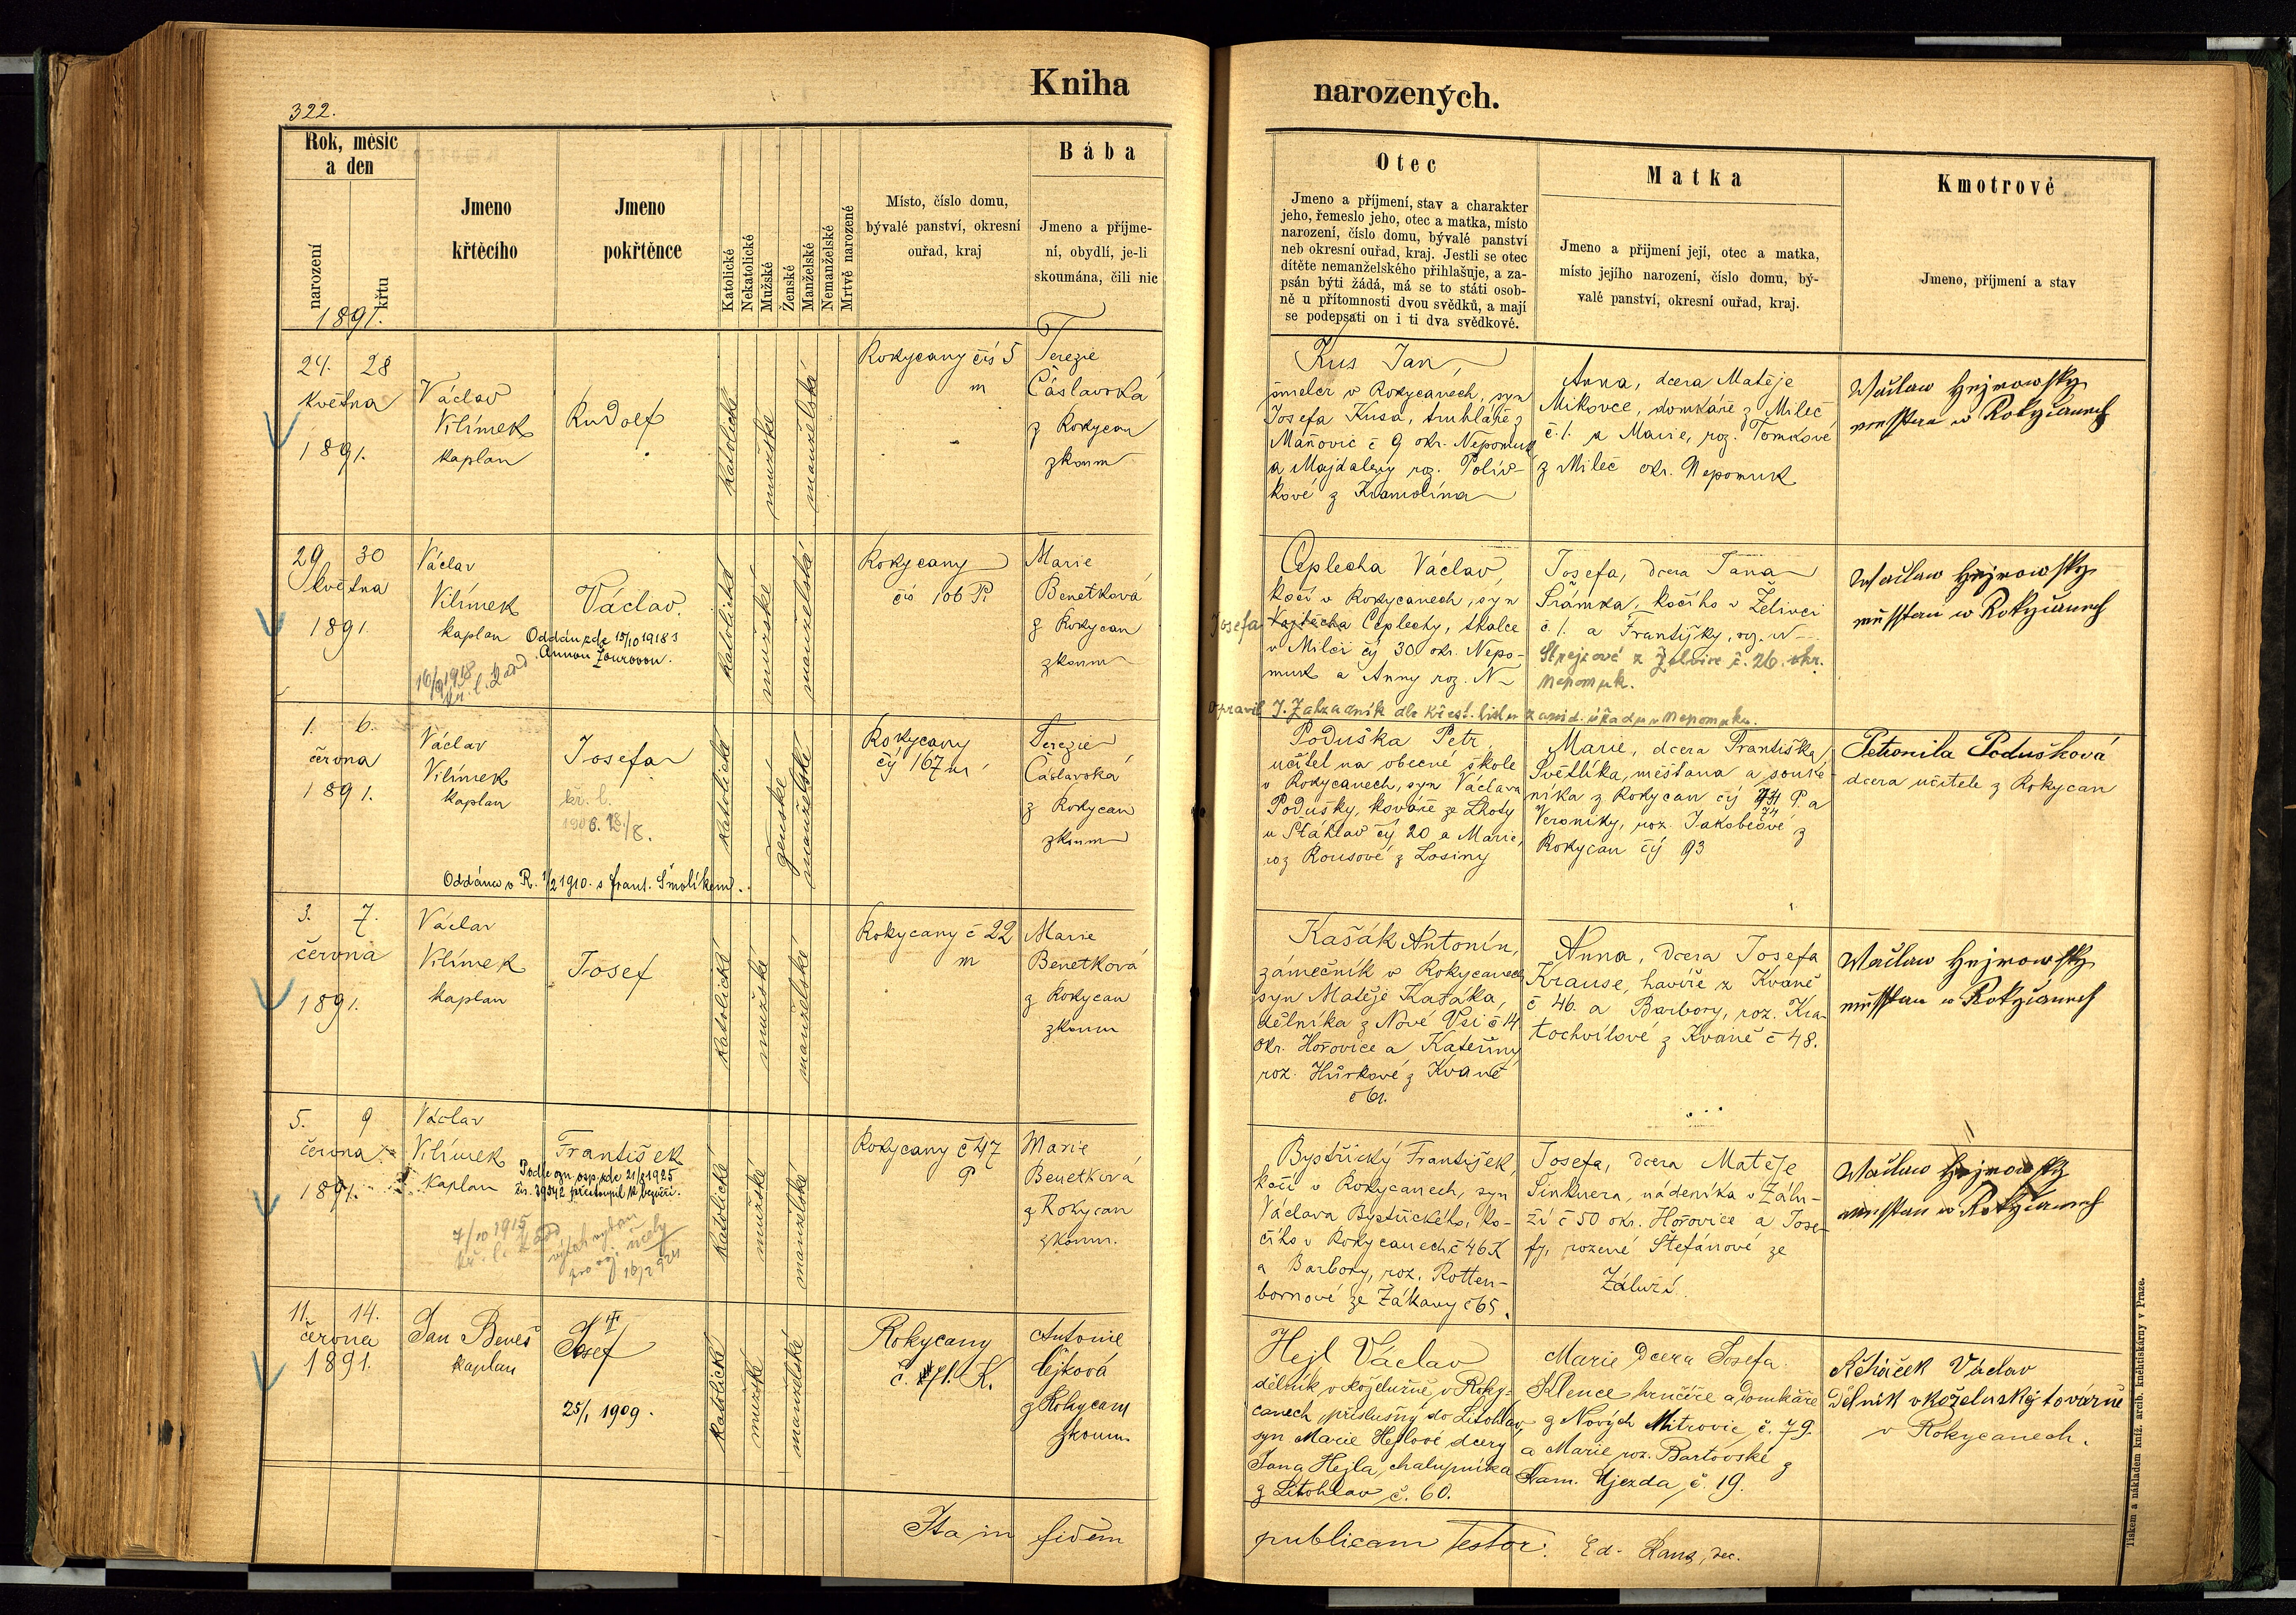 Kniha
narozených.
322.
Rok, měsíc
a den
narození
křtu
1891.
Jmeno
křtěcího
Jmeno
pokřtěnce
Katolické
Nekatolické
Mužské
Ženské
Manželské
Nemanželské
Mrtvě narozené
Místo, číslo domu,
bývalé panství, okresní
ouřad, kraj
Bába
Jmeno a příjme-
ní, obydlí, je-li
skoumána, čili nic
Otec
Jmeno a příjmení, stav a charakter
jeho, řemeslo jeho, otec a matka, místo
narození, číslo domu, bývalé panství
neb okresní ouřad, kraj. Jestli se otec
dítěte nemanželského přihlašuje, a za-
psán býti žádá, má se to státi osob-
ně u přítomnosti dvou svědků, a mají
se podepsati on i ti dva svědkové.
Matka
Jmeno a přijmení její, otec a matka,
místo jejího narození, číslo domu, bý-
valé panství, okresní ouřad, kraj.
Kmotrové
Jmeno, příjmení a stav
24. 28
května
1891.
Václav
Vilímek
kaplan
Rudolf
katolické
mužské
manželské
Rokycany čís 5
m
Terezie
Čáslavská
z Rokycan
zkoum
Kus Jan,
v Rokycanech, syn
Josefa Kusa, truhláře z
Maňovic č 9 okr. Nepomuk
a Majdaleny roz. Polív-
kové z Kramolína
Anna, dcera Matěje
Mikovce, domkáře z Mileč
č. 1. a Marie, roz. Tomkové
z Mileč okr. Nepomuk
Waclaw Hejrowsky
messtan w Rokyczanech
29 30
května
1891
Václav
Vilímek
kaplan
Václav.
Oddán zde 15/10 1918 s
Annou Zourovou.
16/9 1918
kř. l. k odd
katolické
mužské
manželské
Rokycany
čís 106 P.
Marie
Benetková
z Rokycan
zkoum
Ceplecha Václav,
kočí v Rokycanech, syn
Josefa Vojtěcha Ceplechy, tkalce
v Milči čí 30 okr. Nepo-
muk a Anny roz. N
Josefa, dcera Jana
Šrámka, kočího v Želivci
č. 1. a Františky, roz. N
č. 26. okr.
Nepomuk.
Waclaw Hejrowsky
messtan w Rokyczanech
opravil J. Zahradník dle křest. listu z úřadu v Nepomuku.
1. 6.
června
1891.
Václav
Vilímek
kaplan
Josefa
kř. l.
1906. 18/8.
Oddána v R. 1/2 1910. s frant. Šmolíkem.
katolické
ženské
manželské
Rokycany
čí 167 m
Terezie
Čáslavská
z Rokycan
zkoum
Poduška Petr
učitel na obecné škole
v Rokycanech, syn Václava
Podušky, kováře ze Lhoty
u Šťáhlav čí 20 a Marie,
roz Rousové z Losiny
Marie, dcera Františka
Světlíka, měšťana a souke-
níka z Rokycan čí 74 P. a
Veroniky, roz. Jakobeové z
Rokycan čí 93
Petronila Podušková
dcera učitele z Rokycan
3. 7.
června
1891.
Václav
Vilímek
kaplan
Josef
katolické
mužské
manželské
Rokycany č 22
m
Marie
Benetková
z Rokycan
zkoum
Kašák Antonín,
zámečník v Rokycanech
syn Matěje Kašáka,
dělníka z Nové Vsi č 14
okr. Hořovice a Kateřiny
roz. Hůrkové z Kvaně
č 61.
Anna, dcera Josefa
Krause, havíře z Kvaně
č 46. a Barbory, roz. Kra-
tochvílové z Kvaně č 48.
Waclaw Hejrowsky
messtan w Rokyczanech
5. 9
června
1891.
Václav
Vilímek
kaplan
František
Podle ozn. osp. zde 21/8 1925
čís. 39342 přistoupil k bezvěří.
7/10 1915
kř. l. k odd
výtah vydán
pro voj. účely
16/2 924
katolické
mužské
manželské
Rokycany č 47
P
Marie
Benetková
z Rokycan
zkoum.
Bystřický František,
kočí v Rokycanech, syn
Václava Bystřického, ko-
čího v Rokycanech č 46 K
a Barbory, roz. Rotten-
bornové ze Žákavy č 65.
Josefa, dcera Matěje
Šinknera, nádeníka v Zálu-
ží č 50 okr. Hořovice a Jose-
fy, rozené Štefánové ze
Záluží.
Waclaw Hejrowsky
messtan w Rokyczanech
11. 14.
června
1891.
Jan Beneš
kaplan
Josef
25/1 1909.
katolické
mužské
manželské
Rokycany
č. 71. K.
Antonie
Čejková
z Rokycan
zkoum.
Hejl Václav
dělník v koželužně v Roky-
canech příslušný do Litohlav,
syn Marie Hejlové dcery
Jana Hejla, chalupníka
z Litohlav č. 60.
Marie dcera Josefa
Klence hrnčíře a domkáře
z Nových Mitrovic č. 79.
a Marie roz. Bartovské z
Kam. Újezda, č. 19.
Václav
dělník v koželužské továrně
v Rokycanech.
Ita in fidem
publicam testor. Ed. Hans, dec.
Tiskem a nákladem kníž. arcib. kněhtiskárny v Praze.